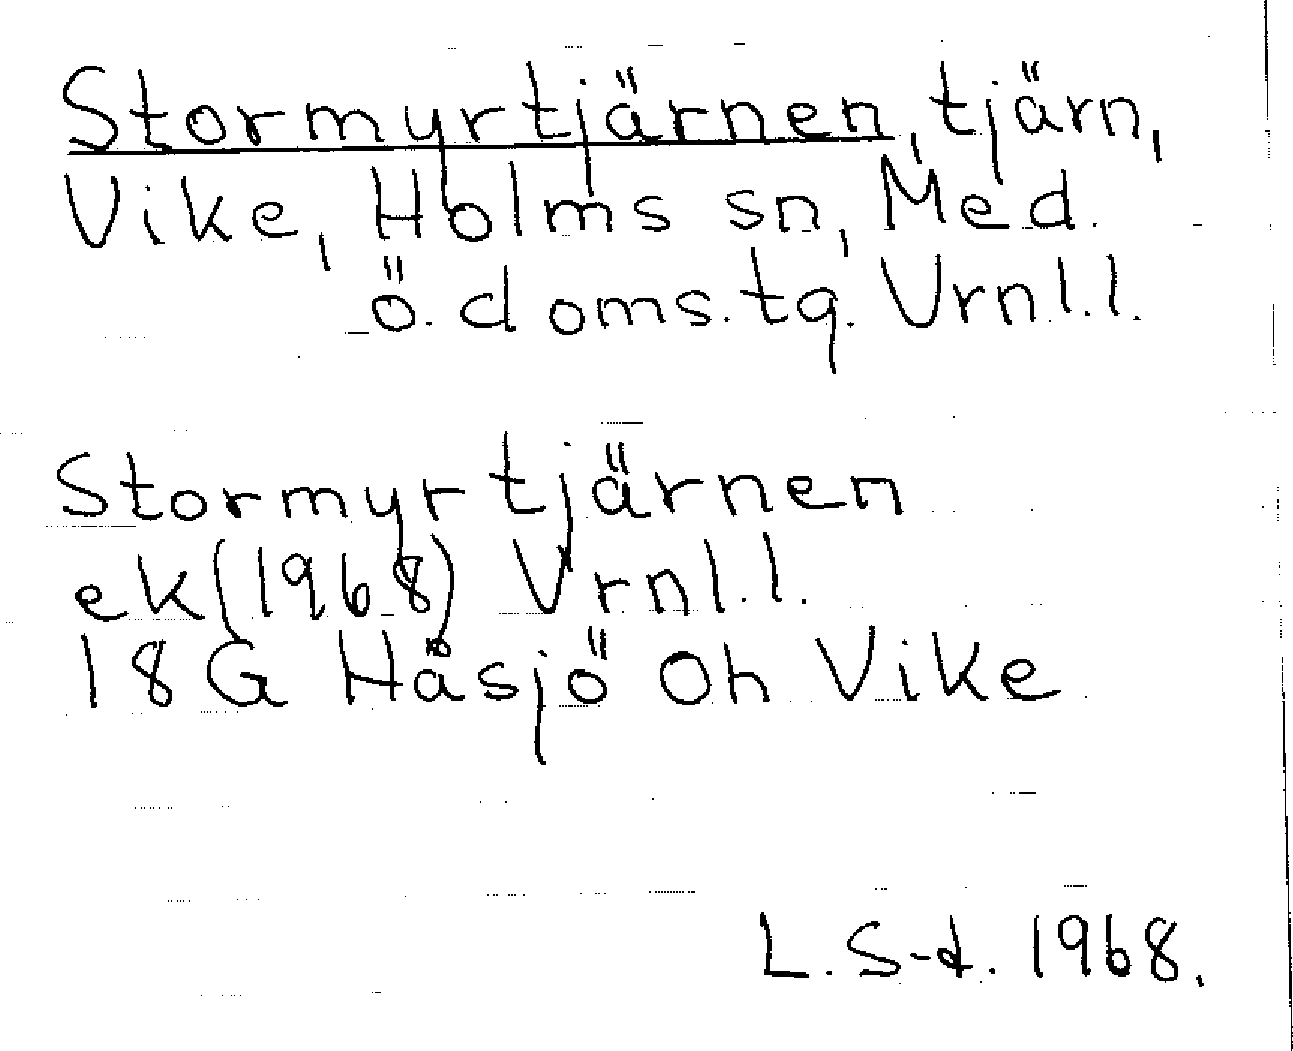 Stormyrtjärnen, tjärn,
Vike, Holms sn, Med.
ö. doms. tg. Vrnl.l.
Stormyrtjärnen
ek (1968) Vrnl.l.
18G Håsjö Oh Vike
L. S-d. 1968.